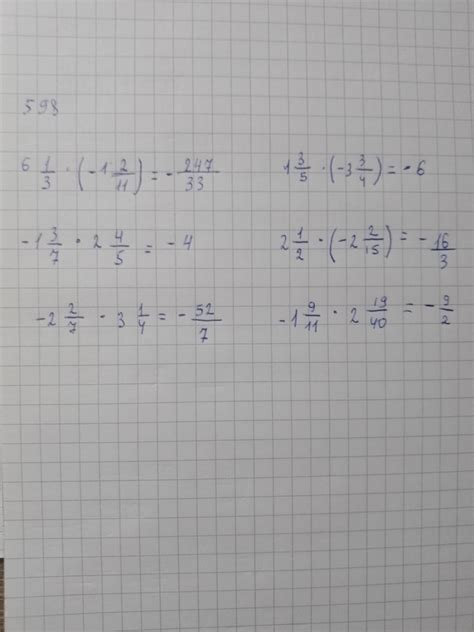 598
6 1/3 · (-1 2/11) = - 247/33
1 3/5 · (-3 3/4) = - 6
-1 3/7 · 2 4/5 = - 4
2 1/2 · (-2 2/15) = - 16/3
-2 2/7 · 3 1/4 = - 52/7
-1 9/11 · 2 19/40 = - 9/2